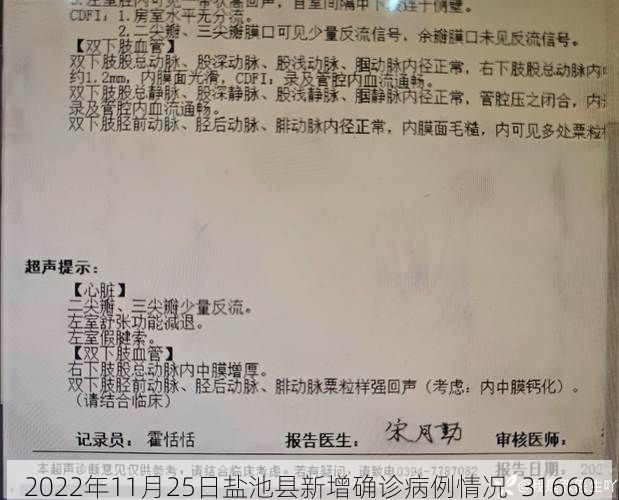 3.左室腔内可见一带状强回声，自室间隔中下段连于侧壁。
CDFI：1.房室水平无分流。
2.二尖瓣、三尖瓣膜口可见少量反流信号，余瓣膜口未见反流信号。
【双下肢血管】
双下肢股总动脉、股深动脉、股浅动脉、腘动脉内径正常，右下肢股总动脉内
约1.2mm，内膜面光滑，CDFI：录及管腔内血流通畅。
双下肢股总静脉、股深静脉、股浅静脉、腘静脉内径正常，管腔压之闭合，内
录及管腔内血流通畅。
双下肢胫前动脉、胫后动脉、腓动脉内径正常，内膜面毛糙，内可见多处粟粒
超声提示：
【心脏】
二尖瓣、三尖瓣少量反流。
左室舒张功能减退。
左室假腱索。
【双下肢血管】
右下肢股总动脉内中膜增厚。
双下肢胫前动脉、胫后动脉、腓动脉粟粒样强回声（考虑：内中膜钙化）。
（请结合临床）
记录员： 霍恬恬 报告医生： 宋月勤 审核医师：
本超声诊断意见仅供参考，请结合临床考虑。若有疑问，请致电 0394-7787535 报告日期： 202
2022年11月25日盐池县新增确诊病例情况- 31660